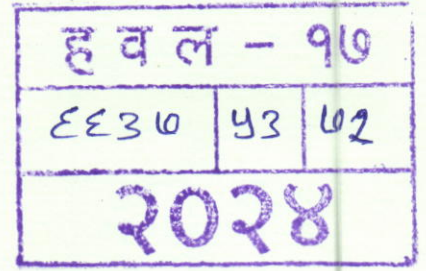 हवल - १७
६६३७ ५३ ७२
२०२४